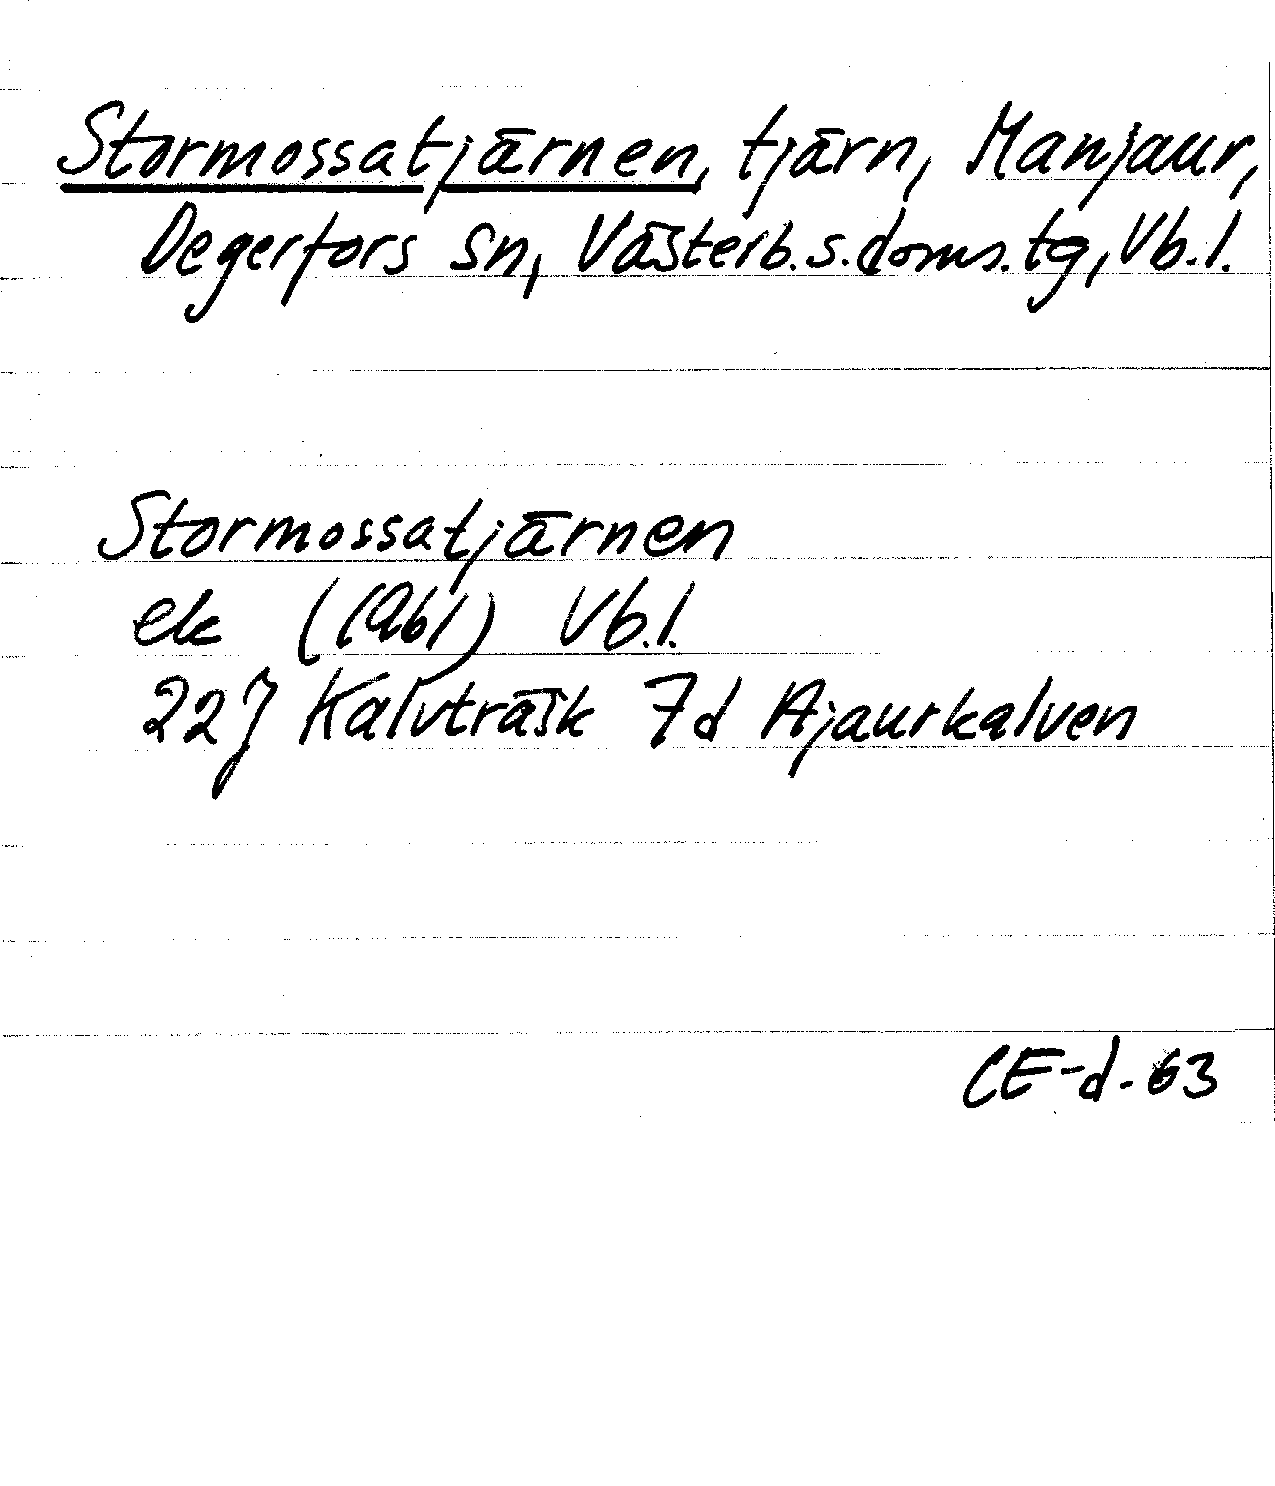 Stormossatjärnen, tjärn, Manjaur,
Degerfors sn, Västerb. s. doms. tg, Vb. l.
Stormossatjärnen
ek (1961) Vb. l.
22J Kalvträsk 7d Ajaurkalven
CE-d-63